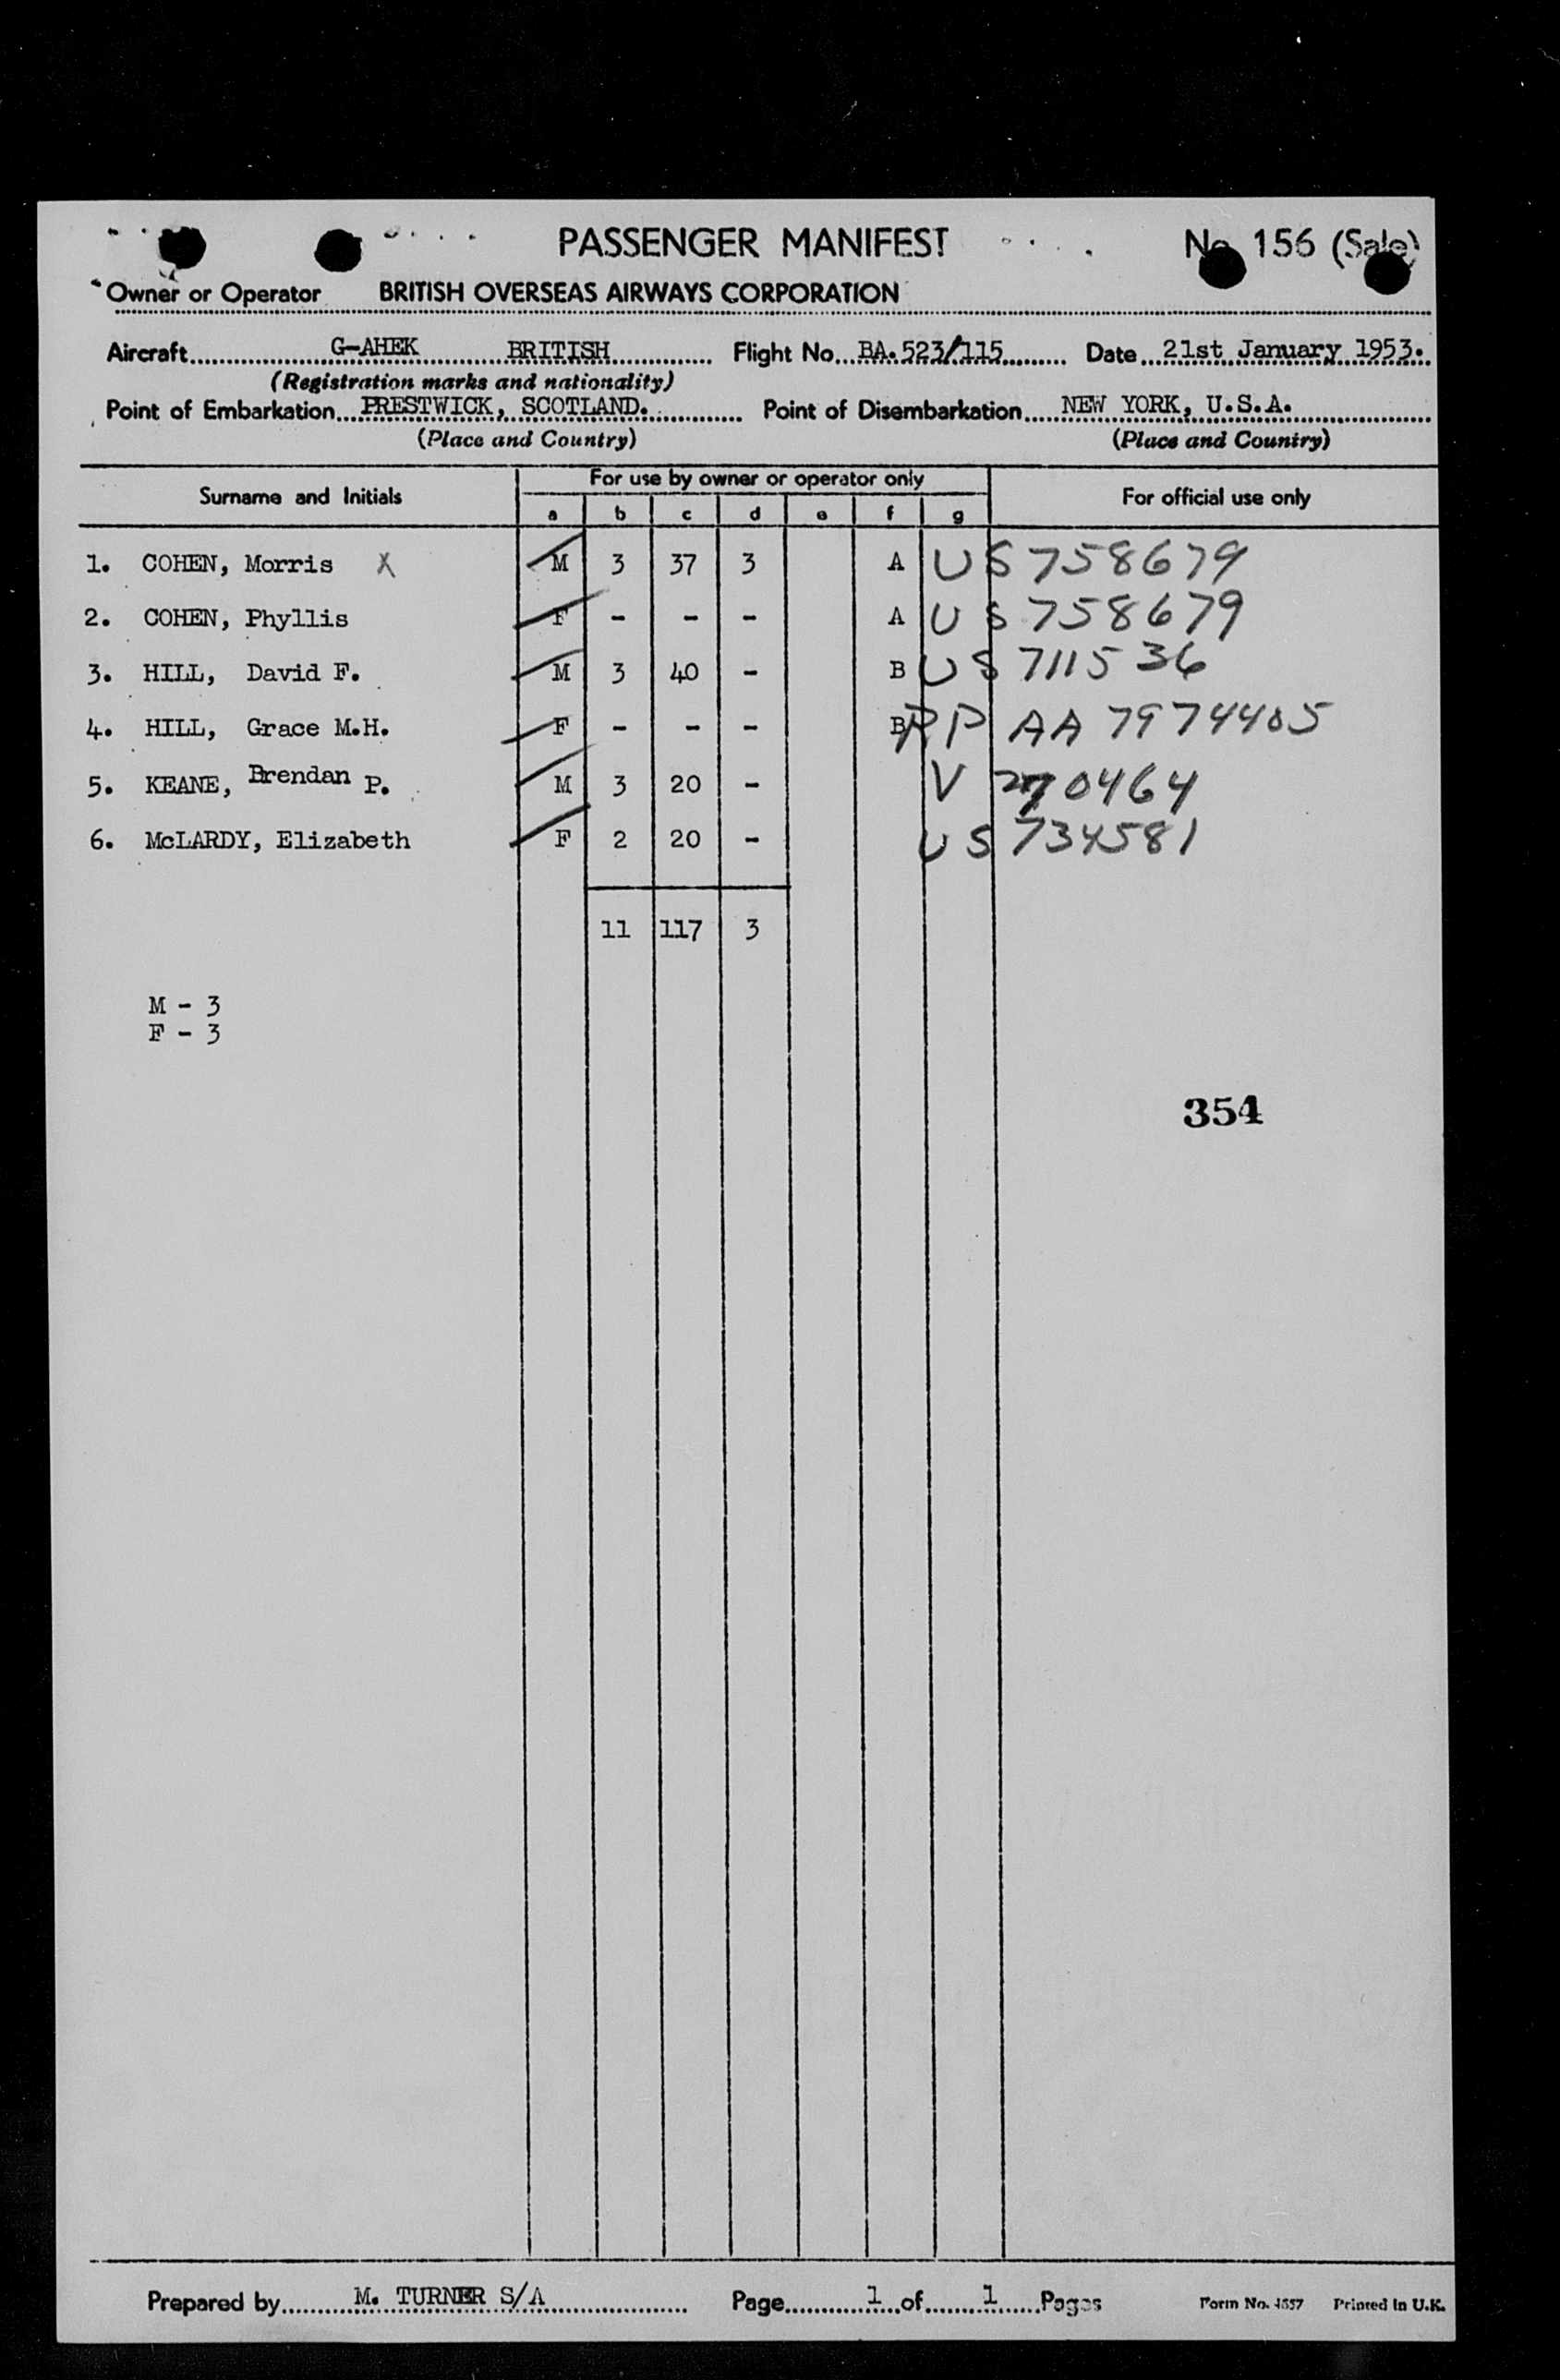 PASSENGER MANIFEST No 156 (Sale)
Owner or Operator BRITISH OVERSEAS AIRWAYS CORPORATION
Aircraft G-AHEK BRITISH Flight No. BA.523/115 Date 21st January 1953.
(Registration marks and nationality)
Point of Embarkation PRESTWICK, SCOTLAND. Point of Disembarkation NEW YORK, U.S.A.
(Place and Country) (Place and Country)
Surname and Initials For use by owner or operator only For official use only
a b c d e f g
1. COHEN, Morris X M 3 37 3 A US 758679
2. COHEN, Phyllis F - - - A US 758679
3. HILL, David F. M 3 40 - B US 711536
4. HILL, Grace M.H. F - - - B RP AA 7974405
5. KEANE, Brendan P. M 3 20 - V 270464
6. McLARDY, Elizabeth F 2 20 - US 734581
11 117 3
M - 3
F - 3
354
Prepared by M. TURNER S/A Page 1 of 1 Pages Form No. Printed in U.K.